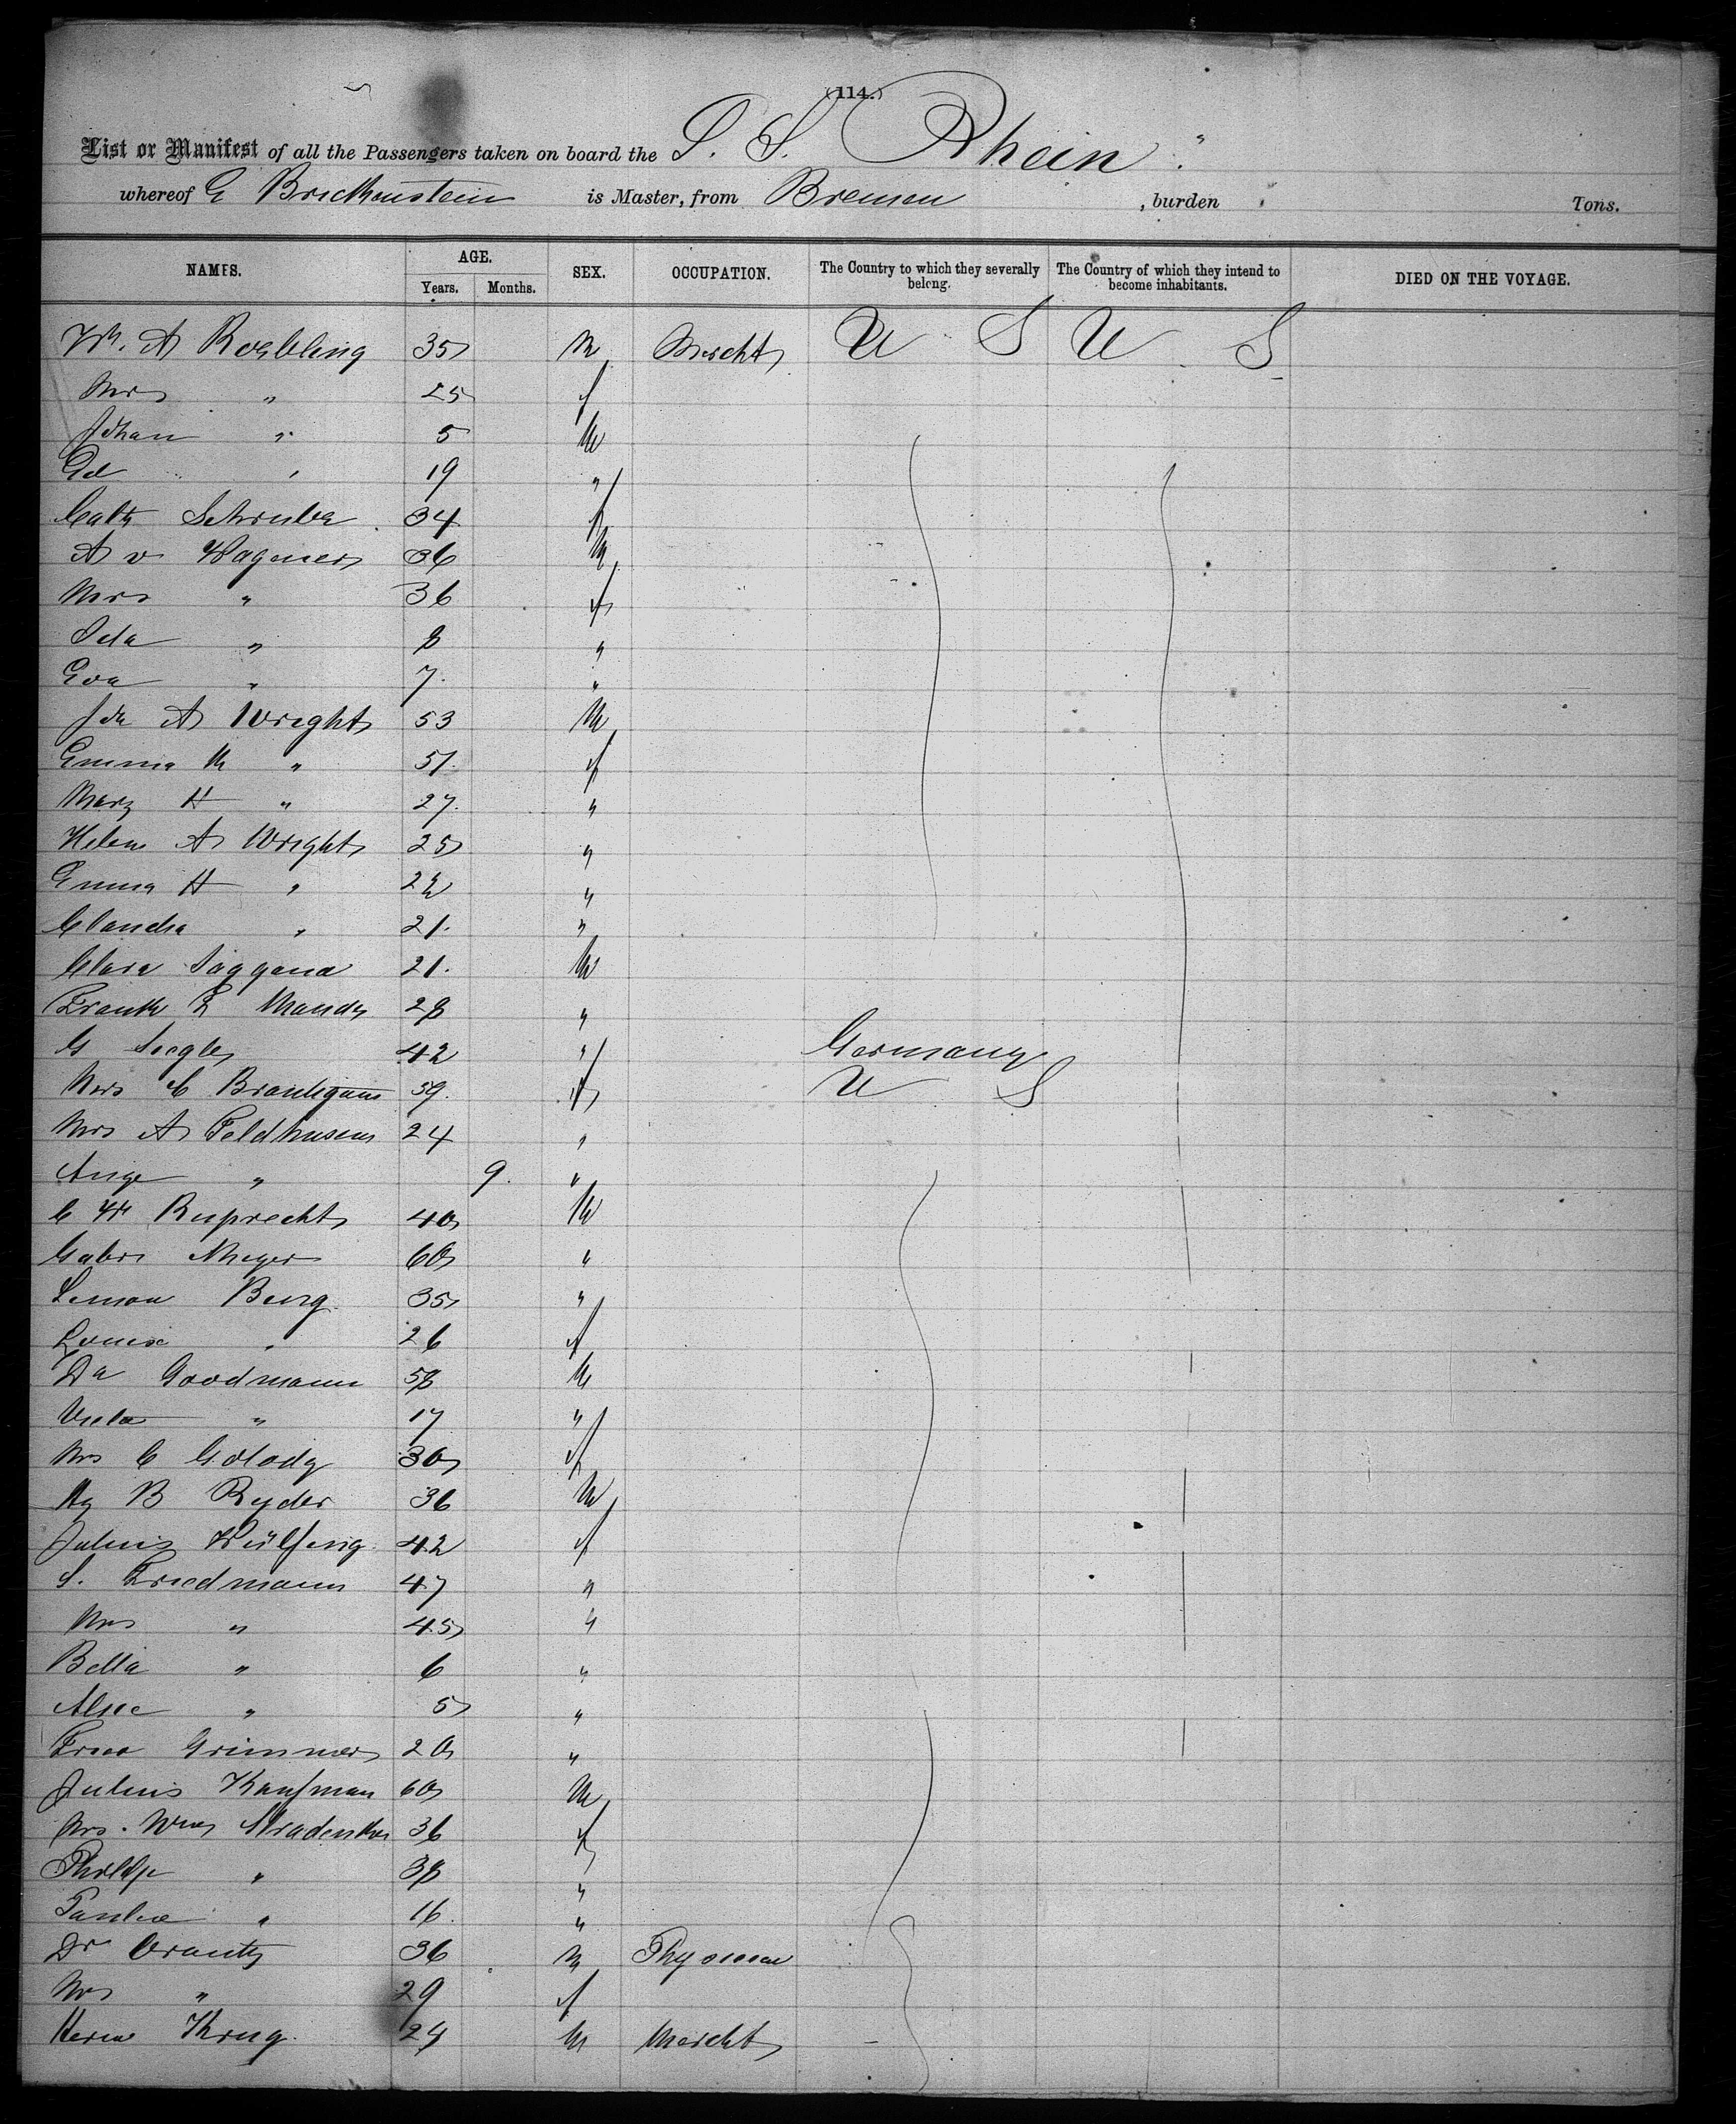 (114.)
List or Manifest of all the Passengers taken on board the S. S. Rhein "
whereof G Brickenstein is Master, from Bremen , burden Tons.
NAMES. AGE. SEX. OCCUPATION. The Country to which they severally belong. The Country of which they intend to become inhabitants. DIED ON THE VOYAGE.
Years. Months.
W. A Roebling 35 M Mercht U S U S
Mrs " 25 f
Johan " 5 M
Ed " 19 "
Cath 34 f
A v Wagener 36 M
Mrs " 36 f
Ida " 8 "
Eva " 7 "
A Wright 53 M
Emma M " 51 f
Mary H " 27 "
Helen A Wright 25 "
Emma H " 22 "
Claudia " 21 "
Clara 21 M
Frank L 28 "
G Siegler 42 " Germany
Mrs C Brautigam 59 f U S
Mrs A Feldhusen 24 "
" 9 "
C W Ruprecht 40 M
Gabr Meyer 60 "
Simon Burg 35 "
Louise " 26 f
Goodmann 58 M
" 17 "
Mrs C 30 f
B Ryder 36 M
Julius Wülfing 42 f
S. Friedmann 47 "
Mrs " 45 "
Bella " 6 "
Alice " 5 "
Grimmer 20 "
Julius Kaufman 60 M
Mrs. Wm 36 f
Philip " 38 "
Pauline " 16 "
Dr 36 M Physician
Mrs " 29 f
Herm Krug 24 M Mercht